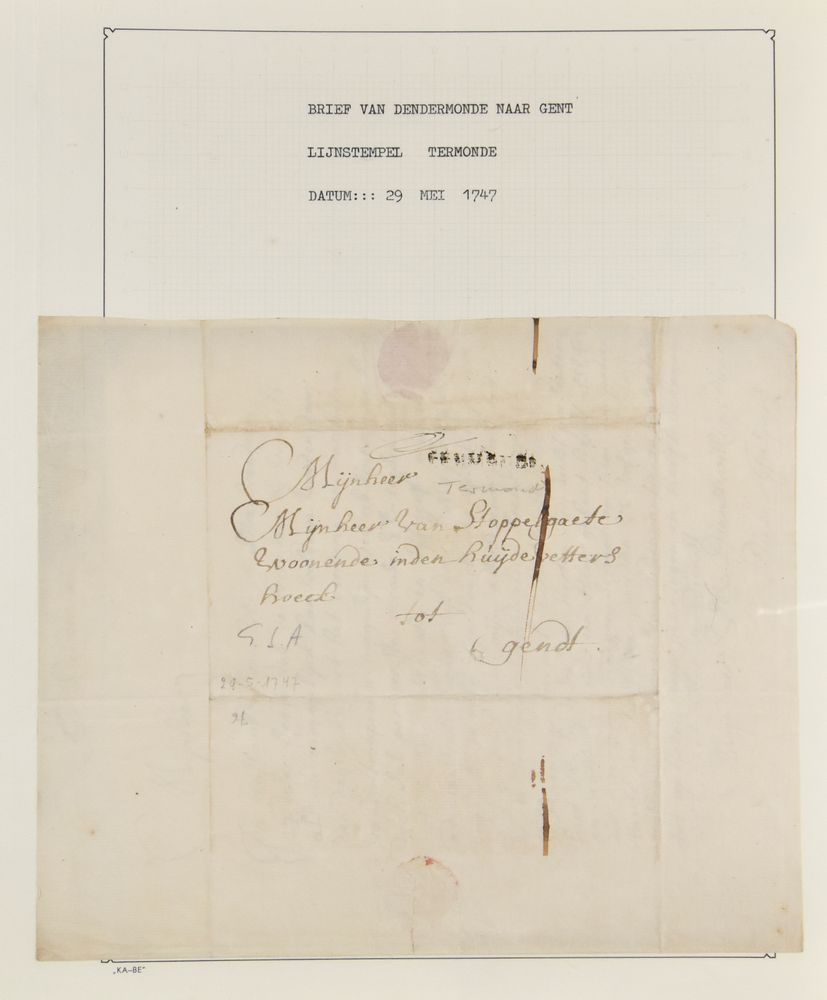 BRIEF VAN DENDERMONDE NAAR GENT
LIJNSTEMPEL TERMONDE
DATUM::: 29 MEI 1747
Mijnheer
Termond
Mijnheer Van Stoppelgaete
Woonende inden huijdevetters
hoeck
tot
gendt.
G.S.A
29-5-1747
„KA-BE"